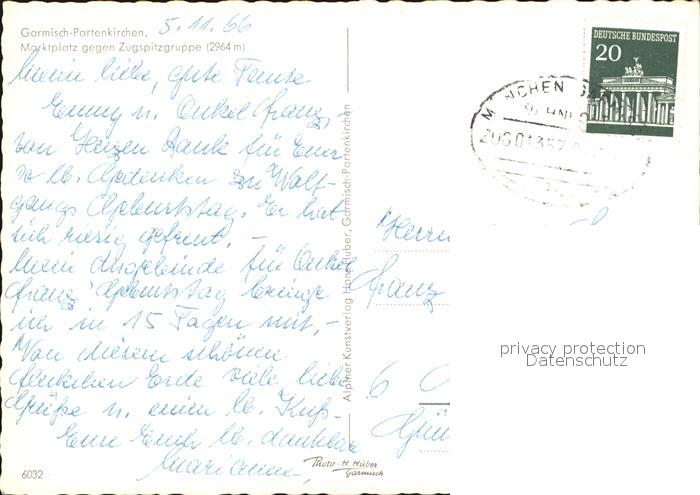 Garmisch-Partenkirchen,
Marktplatz gegen Zugspitzgruppe (2964 m)
5.11.66
Meine liebe, gute Tante
Emmy u. Onkel Franz,
von Herzen Dank für Euer
so lb. Gedenken zu Wolf-
gangs Geburtstag. Er hat
sich riesig gefreut. –
Mein Angebinde für Onkel
Franz' Geburtstag bringe
ich in 15 Tagen mit. –
Von diesem schönen
Fleckchen Erde viele liebe
Grüße u. einen lb. Kuß –
Eure Euch lb. dankbare
Marianne –
6032
Photo-H. Huber
Garmisch
Alpiner Kunstverlag Hans Huber, Garmisch-Partenkirchen
DEUTSCHE BUNDESPOST
20
MÜNCHEN
ZUG 01357
Herrn
Franz
6
privacy protection
Datenschutz